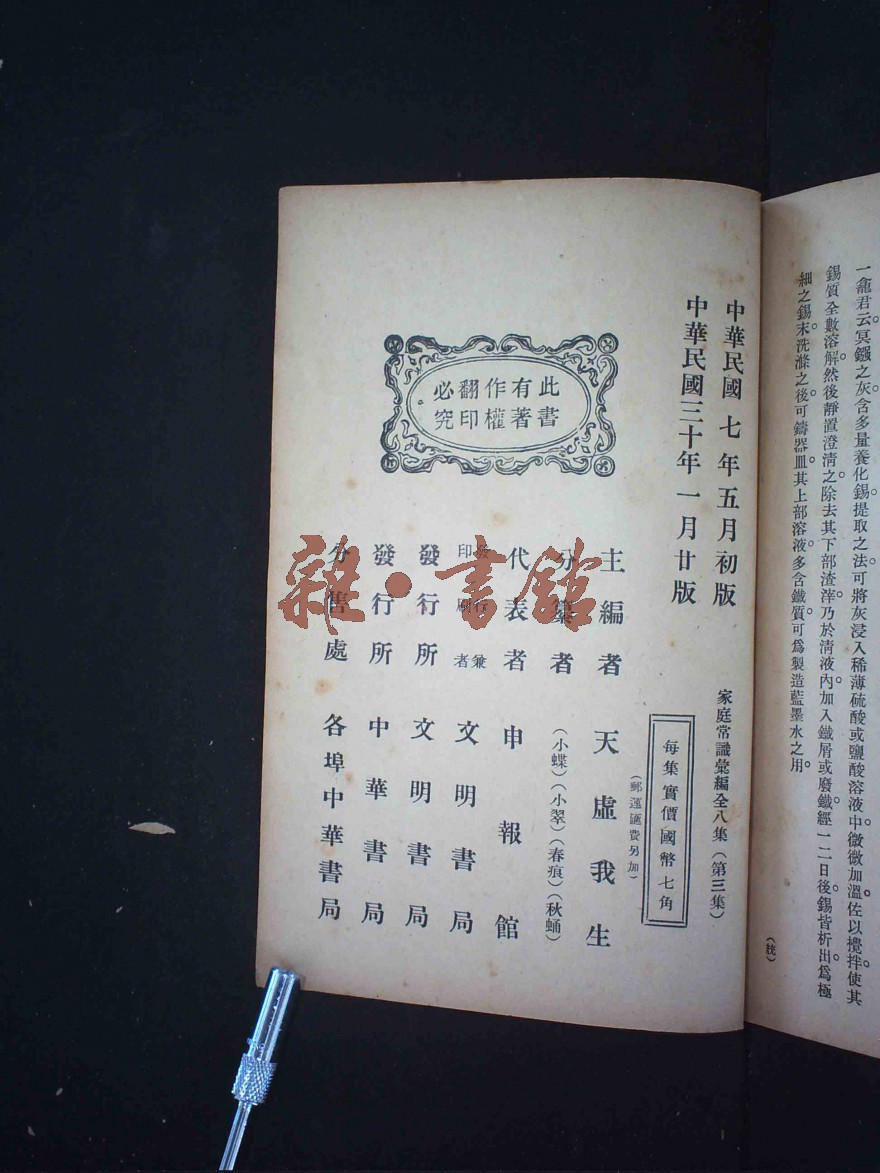 一龕君云。冥鏹之灰含多量養化錫。提取之法。可將灰浸入稀薄硫酸或鹽酸溶液中。微微加溫。佐以攪拌。使其
錫質全數溶解。然後靜置澄清之。除去其下部渣滓。乃於清液內。加入鐵屑或廢鐵。經一二日後。錫皆析出。爲極
細之錫末。洗滌之後。可鑄器皿。其上部溶液。多含鐵質。可爲製造藍墨水之用。
(統)
中華民國七年五月初版
中華民國三十年一月廿版
家庭常識彙編全八集(第三集)
每集實價國幣七角
(郵運匯費另加)
此書
有著
作權
翻印
必究
主編者 天虛我生
分纂者 (小蝶)(小翠)(春痕)(秋蛹)
代表者 申報館
發行兼印刷者 文明書局
發行所 文明書局
發行所 中華書局
分售處 各埠中華書局
雜·書館